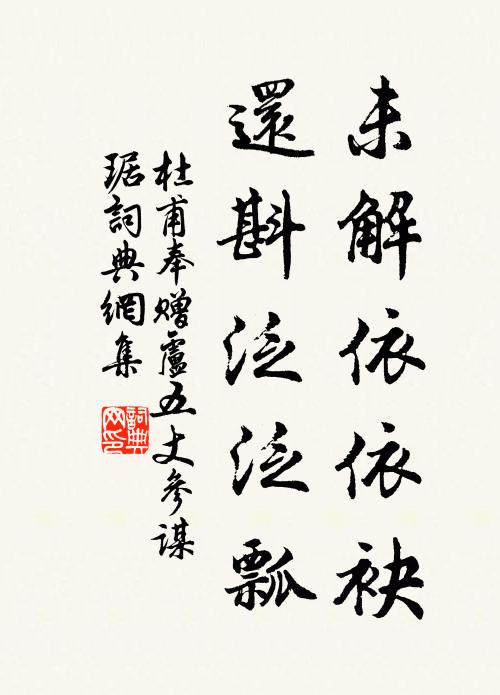 未解依依袂
還斟泛泛瓢
杜甫奉贈盧五丈參謀
琚詞典網集
詞典网印